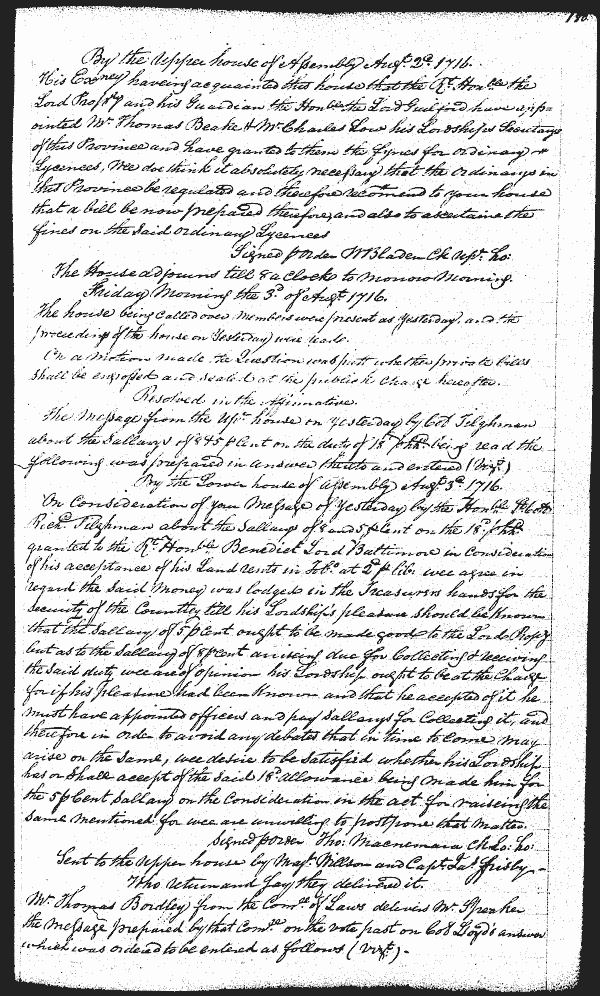 By the Upper house of Assembly Augst. 2d. 1716.
His Exncy haveing acquainted this house that the Rt. Honble the
Lord Propry and his Guardian the Honble the Lord Guilford have app=
ointed Mr. Thomas Beake & Mr. Charles Low his Lordships Secretarys
of this Province and have granted to them the fynes for Ordinary
Lycences, We doe think it absolutely necessary that the Ordinarys in
this Province be regulated and therefore recomend to your house
that a bill be now prepared therefore, and also to ascertaine the
fines on the said ordinary Lycences
Signed p order W Bladen Ck upr. ho:
The House adjourns till 8 a Clock to morrow Morning.
Friday Morning the 3d. of Augst. 1716.
The house being Called over Members were present as Yesterday, and the
proceedings of the house on Yesterday were read.
On a Motion made the Question was putt whether private bills
shall be engrossed and sealed at the publick Charge hereafter.
Resolved in the Affirmative.
The Message from the Upr. house on Yesterday by Col Tilghman
about the Sallarys of 8 & 5 p Cent on the duty of 18d. p hhd. being read the
following was prepared in answer thereto and entered (Vizt.)
By the Lower house of Assembly Augst. 3d. 1716.
On Consideration of your Message of Yesterday by the Honble
Richd. Tilghman about the Sallarys of 8 and 5 p Cent on the 18d. p hhd.
granted to the Rt. Honble Benedict Lord Baltimore in Consideration
of his acceptance of his Land rents in Tobo. at 2d. p lib: wee agree in
regard the said Money was lodged in the Treasurers hands for the
security of the Country till his Lordship's pleasure should be Known
that the Sallary of 5 p Cent ought to be made good to the Lord Propry
but as to the Sallary of 8 p Cent ariseing due for Collecting & receiving
the said duty wee are of opinion his Lordship ought to be at the Charge
for if his pleasure had been Known and that he accepted of it he
must have appointed officers and pay Sallarys for Collecting it, and
therefore in order to avoid any debates that in time to Come may
arise on the same, wee desire to be satisfied whether his Lordship
has or shall accept of the said 18d. allowance being made him for
the 5 p Cent Sallary on the Consideration in the act for raiseing the
same mentioned for wee are unwilling to postpone that matter.
Signed p order Tho: Macnemara Ck Lo: ho:
Sent to the Upper house by Majr. Willson and Capt. Jas. Frisby
Who return and say they delivered it.
Mr. Thomas Bordley from the Comee. of Laws delivers Mr. Speaker
the message prepared by that Comee. on the vote past on Col Lloyd's answer
which was ordered to be entered as follows (Vizt.)